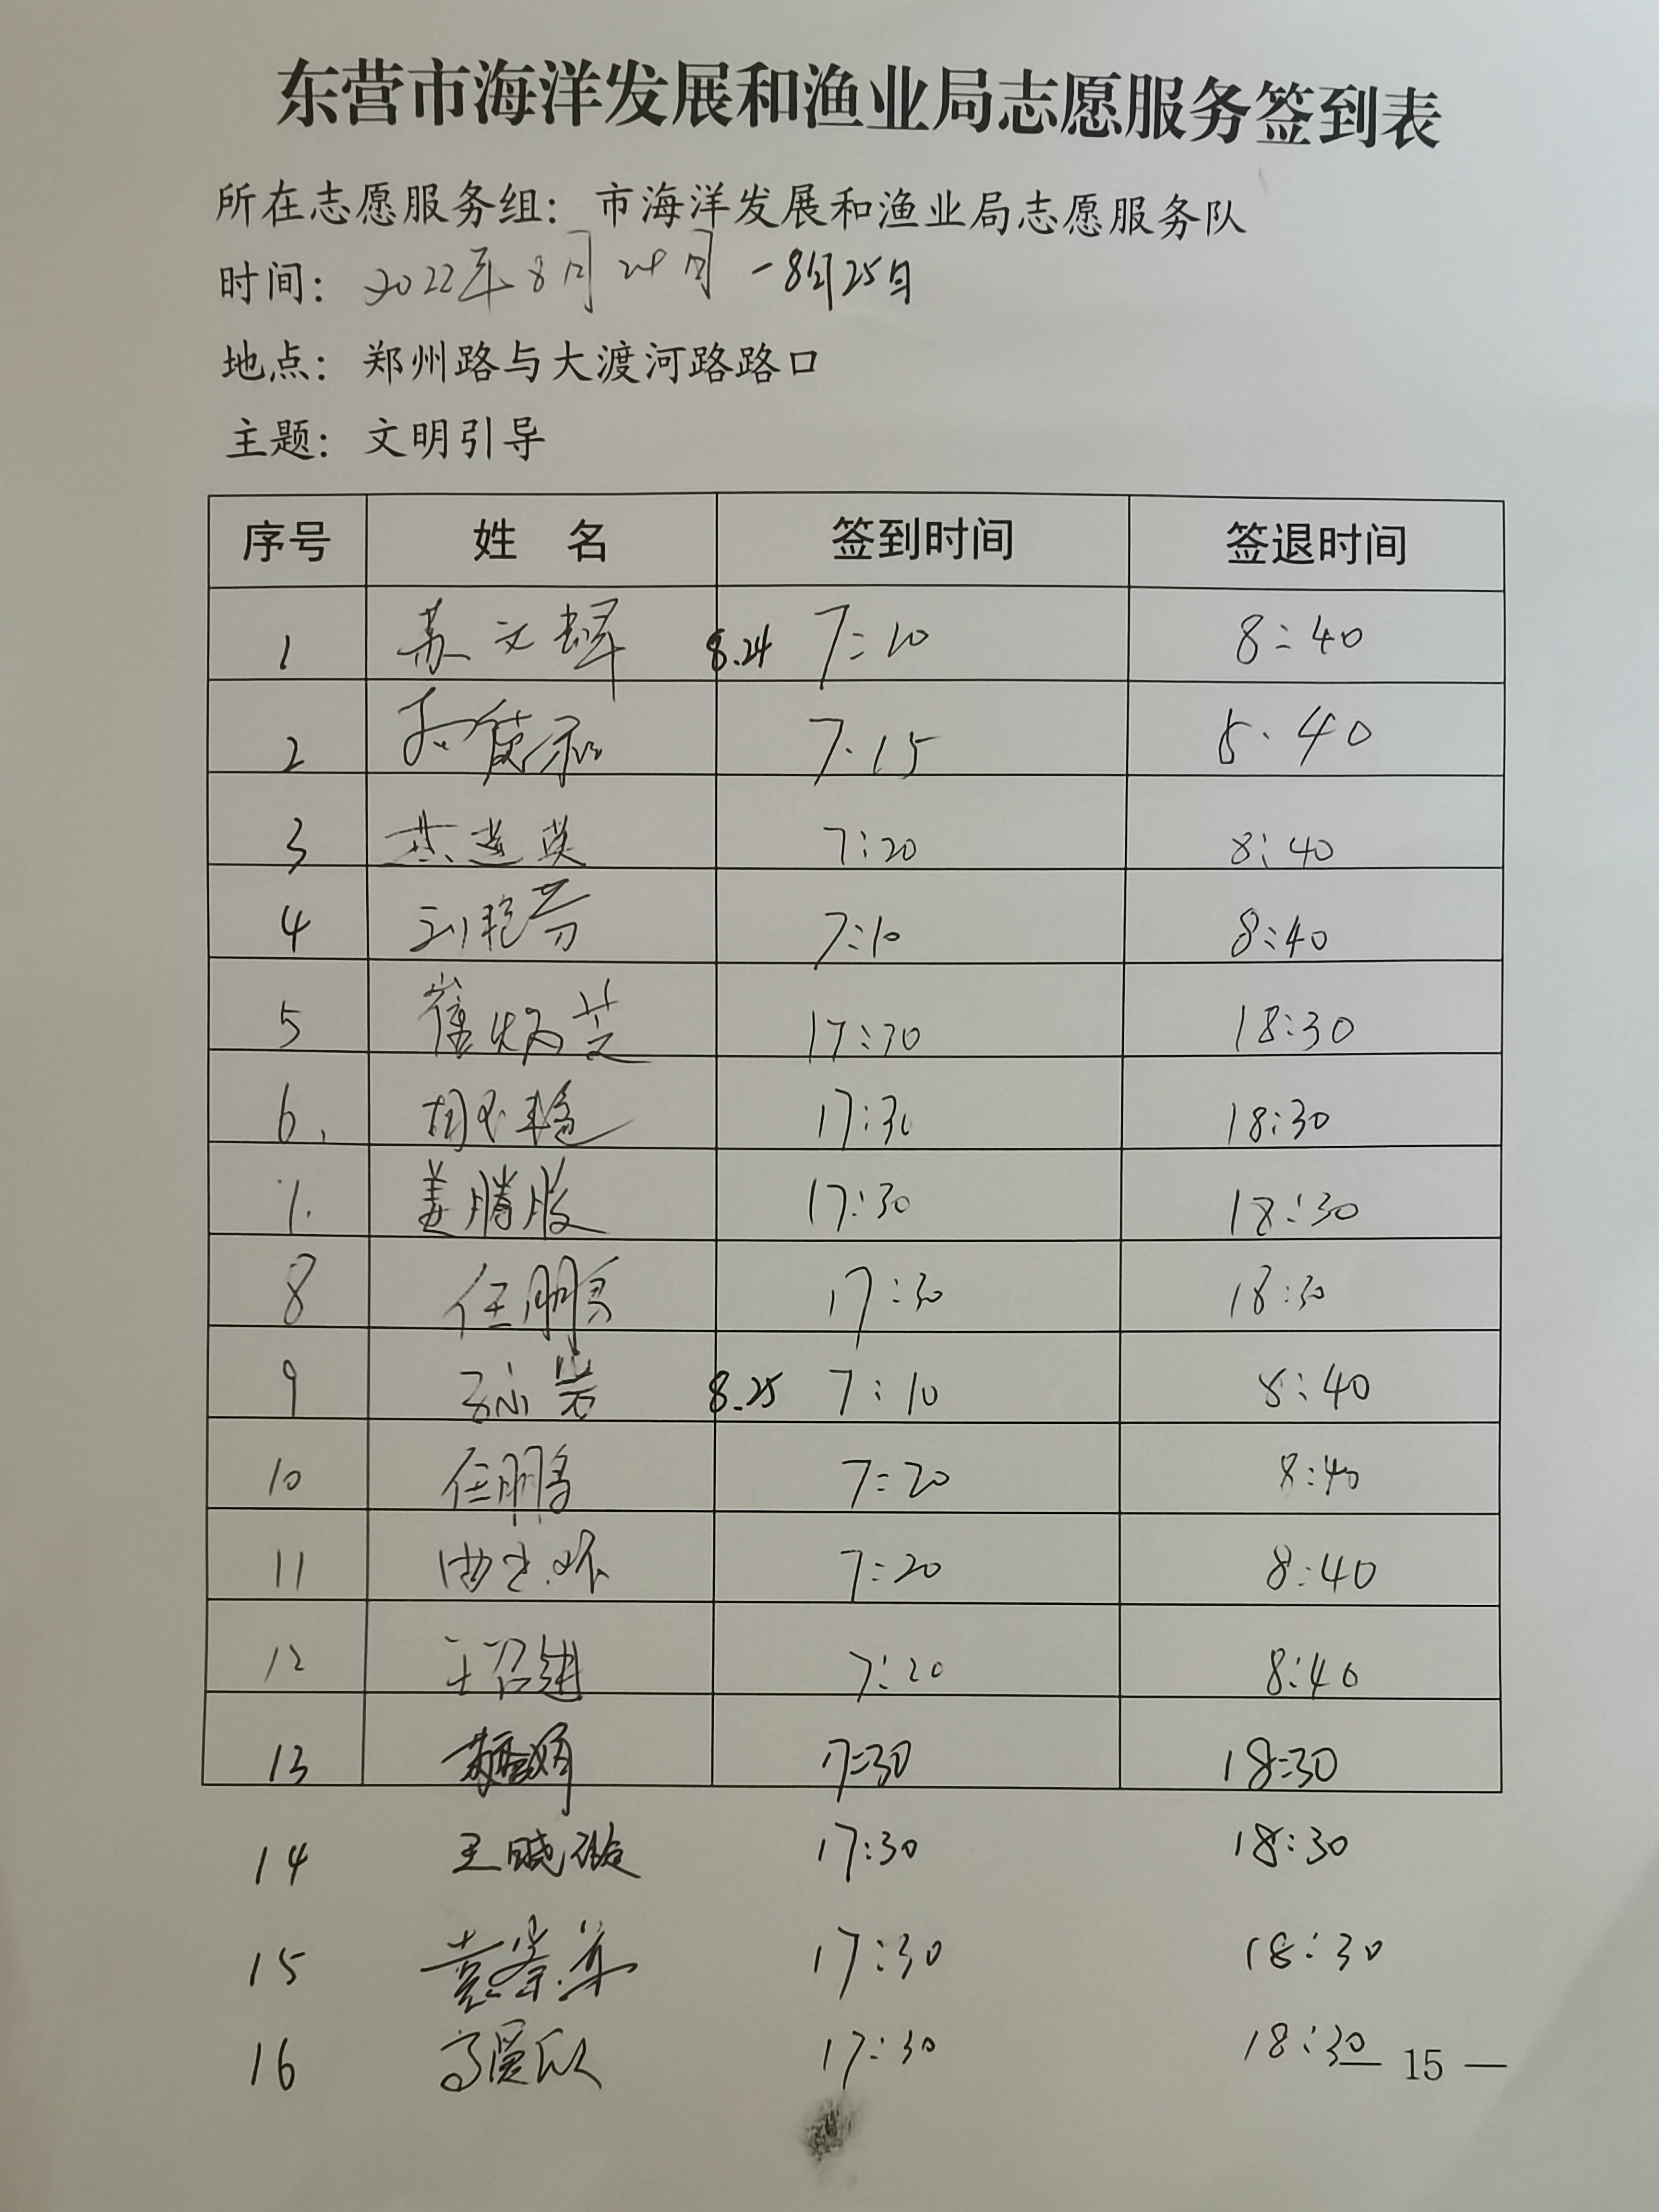 东营市海洋发展和渔业局志愿服务签到表
所在志愿服务组：市海洋发展和渔业局志愿服务队
时间：2022年8月24日-8月25日
地点：郑州路与大渡河路路口
主题：文明引导
序号 姓 名 签到时间 签退时间
1 苏文 8.24 7:10 8:40
2 7.15 8.40
3 7:20 8:40
4 刘艳芳 7:10 8:40
5 崔炳芝 17:30 18:30
6. 胡 17:30 18:30
7. 姜腾 17:30 18:30
8 任鹏 17:30 18:30
9 孙岩 8.25 7:10 8:40
10 任鹏 7:20 8:40
11 7:20 8:40
12 王召进 7:20 8:40
13 17:30 18:30
14 王晓璇 17:30 18:30
15 袁 17:30 18:30
16 高 17:30 18:30
— 15 —